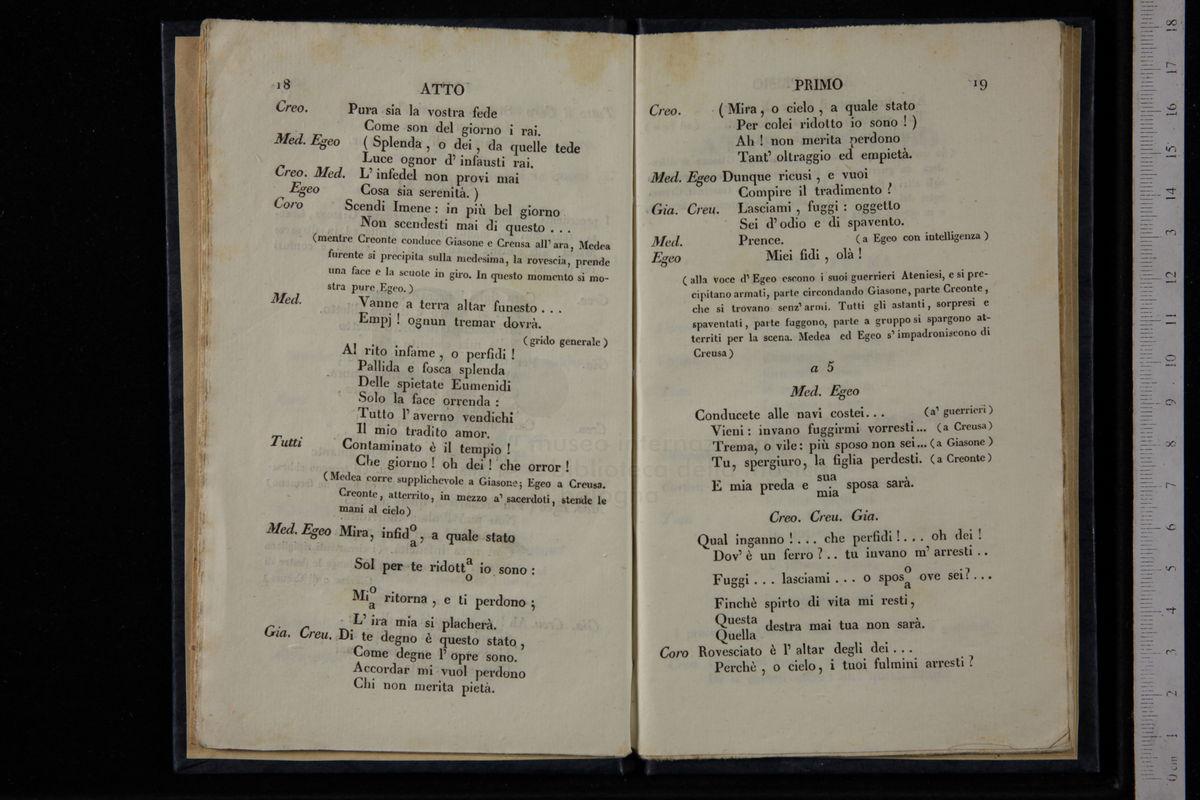 18 ATTO
Creo. Pura sia la vostra fede
Come son del giorno i rai.
Med. Egeo ( Splenda , o dei , da quelle tede
Luce ognor d' infausti rai.
Creo. Med. L' infedel non provi mai
Egeo Cosa sia serenità. )
Coro Scendi Imene : in più bel giorno
Non scendesti mai di questo . . .
(mentre Creonte conduce Giasone e Creusa all' ara, Medea
furente si precipita sulla medesima, la rovescia, prende
una face e la scuote in giro. In questo momento si mo-
stra pure Egeo. )
Med. Vanne a terra altar funesto . . .
Empj ! ognun tremar dovrà.
(grido generale)
Al rito infame , o perfidi !
Pallida e fosca splenda
Delle spietate Eumenidi
Solo la face orrenda :
Tutto l' averno vendichi
Il mio tradito amor.
Tutti Contaminato è il tempio !
Che giorno ! oh dei ! che orror !
(Medea corre supplichevole a Giasone; Egeo a Creusa.
Creonte, atterrito, in mezzo a' sacerdoti, stende le
mani al cielo)
Med. Egeo Mira, infid o/a , a quale stato
Sol per te ridott a/o io sono :
Mi o/a ritorna , e ti perdono ;
L' ira mia si placherà.
Gia. Creu. Di te degno è questo stato ,
Come degne l' opre sono.
Accordar mi vuol perdono
Chi non merita pietà.
PRIMO 19
Creo. ( Mira , o cielo , a quale stato
Per colei ridotto io sono ! )
Ah ! non merita perdono
Tant' oltraggio ed empietà.
Med. Egeo Dunque ricusi , e vuoi
Compire il tradimento ?
Gia. Creu. Lasciami , fuggi : oggetto
Sei d' odio e di spavento.
Med. Prence. (a Egeo con intelligenza)
Egeo Miei fidi , olà !
(alla voce d' Egeo escono i suoi guerrieri Ateniesi, e si pre-
cipitano armati, parte circondando Giasone, parte Creonte,
che si trovano senz' armi. Tutti gli astanti, sorpresi e
spaventati, parte fuggono, parte a gruppo si spargono at-
territi per la scena. Medea ed Egeo s' impadroniscono di
Creusa)
a 5
Med. Egeo
Conducete alle navi costei. . . (a' guerrieri)
Vieni : invano fuggirmi vorresti... (a Creusa)
Trema, o vile: più sposo non sei... (a Giasone)
Tu, spergiuro, la figlia perdesti. (a Creonte)
E mia preda e sua/mia sposa sarà.
Creo. Creu. Gia.
Qual inganno ! . . . che perfidi ! . . . oh dei !
Dov' è un ferro ? . . tu invano m' arresti . .
Fuggi . . . lasciami . . . o spos o/a ove sei ? . . .
Finchè spirto di vita mi resti ,
Questa/Quella destra mai tua non sarà.
Coro Rovesciato è l' altar degli dei . . .
Perchè , o cielo , i tuoi fulmini arresti ?